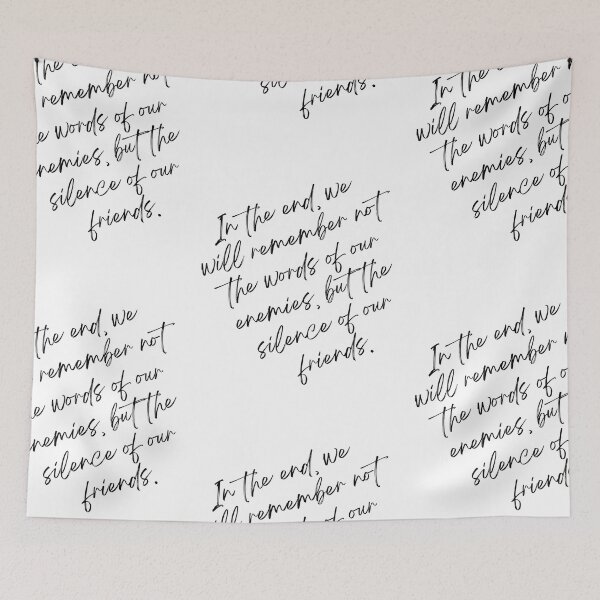 the
remember not
e words of our
nemies, but the
silence of our
friends.
friends.
In the
will remember
the words of o
enemies, but
silence of
friends
In the end, we
will remember not
the words of our
enemies, but the
silence of our
friends.
the end, we
remember not
e words of our
nemies, but the
silence of our
friends.
In the end, we
will remember
the words of o
enemies, but
silence of
friends
In the end, we
will remember not
of our